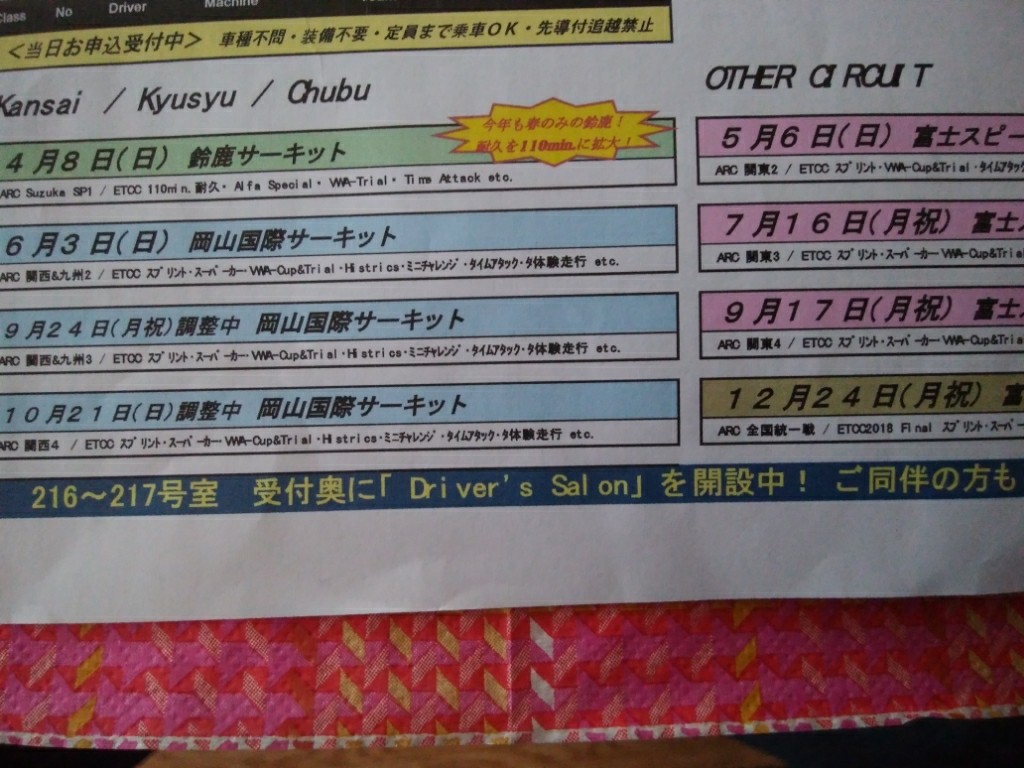 Class No Driver Machine
＜当日お申込受付中＞ 車種不問・装備不要・定員まで乗車OK・先導付追越禁止
Kansai / Kyusyu / Chubu
今年も春のみの鈴鹿！
耐久を110min.に拡大！
４月８日(日) 鈴鹿サーキット
ARC Suzuka SP1 / ETCC 110min. 耐久・ Alfa Special・ VWA-Trial・ Time Attack etc.
６月３日(日) 岡山国際サーキット
ARC 関西&九州2 / ETCC スプリント・スーパーカー・VWA-Cup&Trial・Histrics・ミニチャレンジ・タイムアタック・タ体験走行 etc.
９月２４日(月祝)調整中 岡山国際サーキット
ARC 関西&九州3 / ETCC スプリント・スーパーカー・VWA-Cup&Trial・Histrics・ミニチャレンジ・タイムアタック・タ体験走行 etc.
１０月２１日(日)調整中 岡山国際サーキット
ARC 関西4 / ETCC スプリント・スーパーカー・VWA-Cup&Trial・Histrics・ミニチャレンジ・タイムアタック・タ体験走行 etc.
OTHER CIRCUIT
５月６日(日) 富士スピー
ARC 関東2 / ETCC スプリント・VWA-Cup&Trial・タイムアタック
７月１６日(月祝) 富士
ARC 関東3 / ETCC スプリント・スーパーカー・VWA-Cup&Trial
９月１７日(月祝) 富士
ARC 関東4 / ETCC スプリント・スーパーカー・VWA-Cup&Trial
１２月２４日(月祝) 富
ARC 全国統一戦 / ETCC2018 Final スプリント・スーパー
216～217号室 受付奥に「Driver's Salon」を開設中！ ご同伴の方も